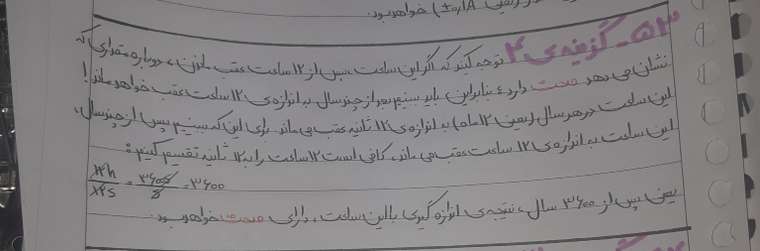 خواهد بود.
۵۳- گزینه‌ی ۲ توجه کنید که اگر این ساعت، پس از ۱۲ ساعت عقب ماندن، دوباره مقداری که
نشان می‌دهد صحت دارد؛ بنابراین، باید ببینیم بعد از چند سال به اندازه‌ی ۱۲ ساعت عقب خواهد ماند!
این ساعت در هر سال (یعنی ۱۲ ماه) به اندازه‌ی ۱۲ ثانیه عقب می‌ماند. برای این که ببینیم پس از چند سال،
این ساعت به اندازه‌ی ۱۲ ساعت عقب می‌ماند، کافی است ۱۲ ساعت را به ۱۲ ثانیه تقسیم کنیم:
۱۲h / ۱۲s = ۳۶۰۰s / s = ۳۶۰۰
یعنی پس از ۳۶۰۰ سال، نتیجه‌ی اندازه‌گیری با این ساعت، دارای صحت خواهد بود.